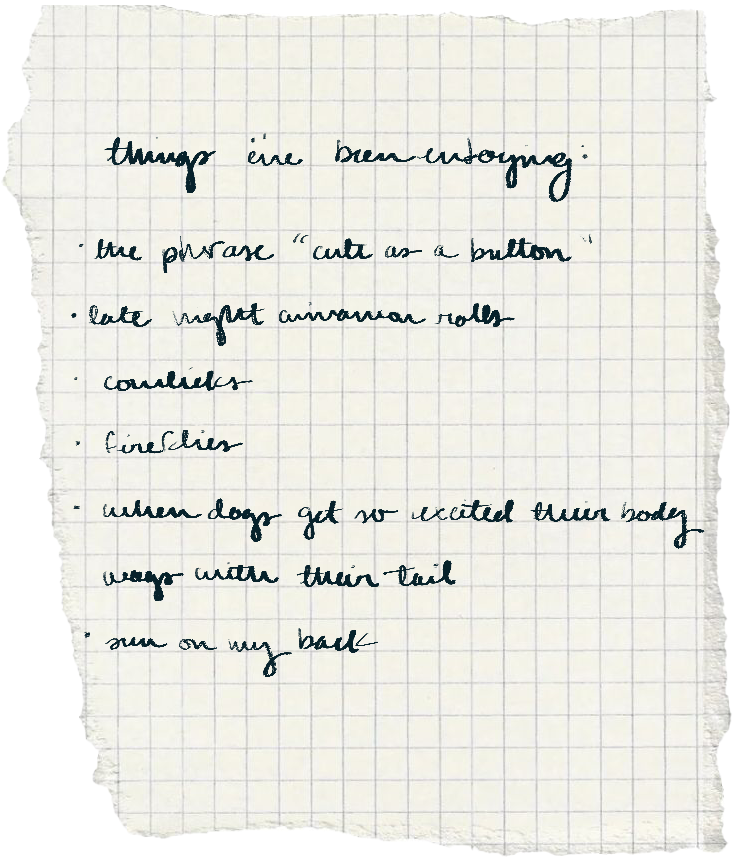 things i've been enjoying:
· the phrase "cute as a button"
· late night cinnamon rolls
· cowlicks
· fireflies
· when dogs get so excited their body
wags with their tail
· sun on my back